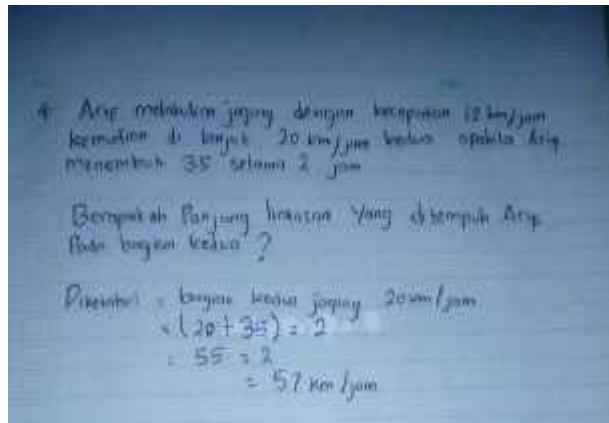 4 Arip melakukan joging dengan kecepatan 12 km/jam
kemudian di lanjut 20 km/jam kedua apabila Arip
menembuh 35 selama 2 jam
Berapakah Panjang lintasan Yang ditempuh Arip
Pada bagian kedua ?
Diketahui = bagian kedua joging 20 km/jam
= (20 + 35) = 2
= 55 = 2
= 57 km/jam